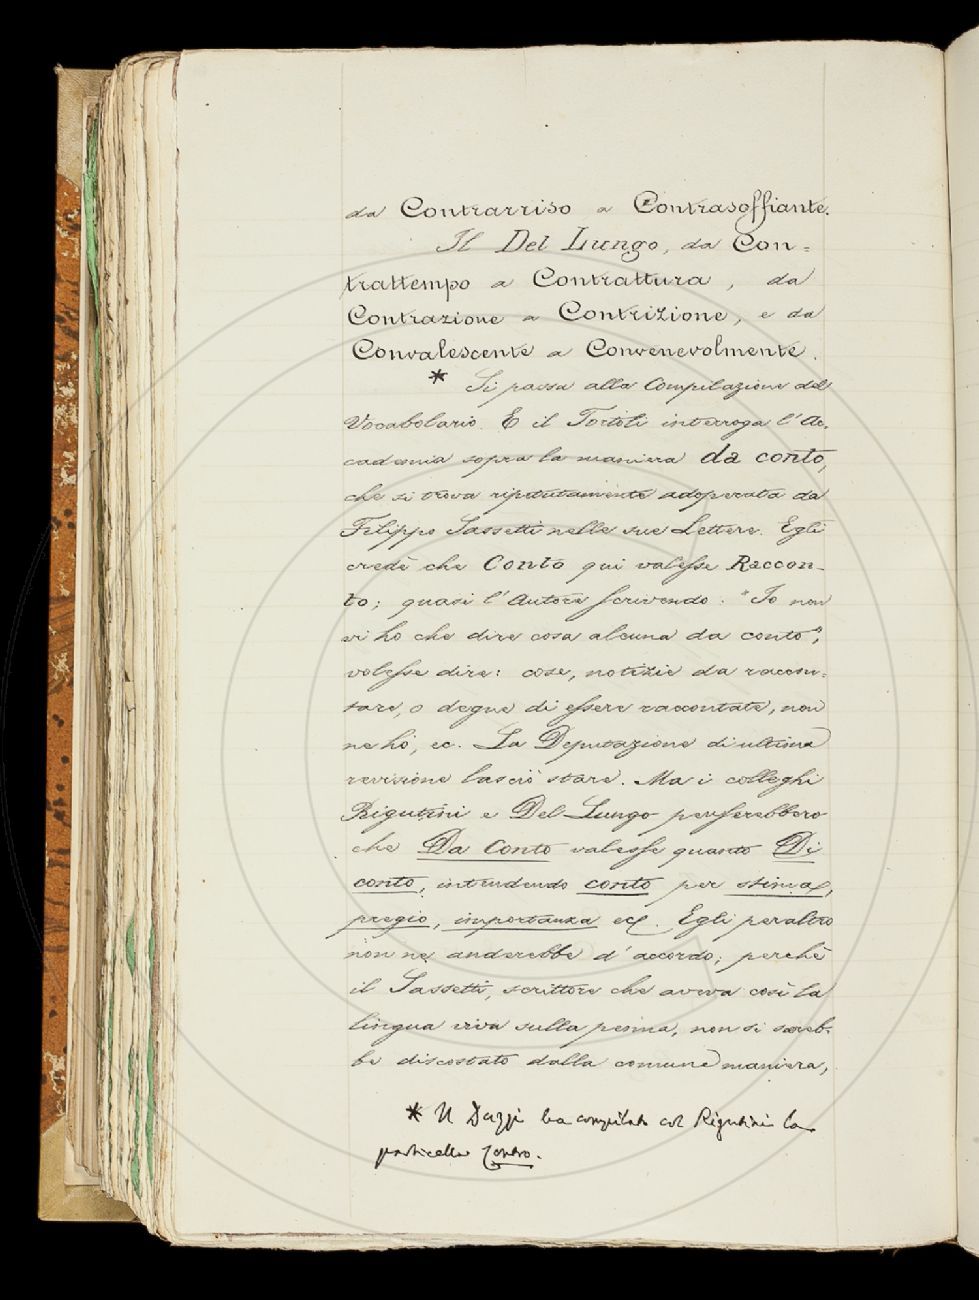 da Contrarriso a Contrasoffiante.
Il Del Lungo, da Con-
trattempo a Contrattura, da
Contrazione a Contrizione, e da
Convalescente a Convenevolmente.
* Si passa alla Compilazione del
Vocabolario. E il Tortoli interroga l'Ac-
cademia sopra la maniera da conto,
che si trova ripetutamente adoperata da
Filippo Sassetti nelle sue Lettere. Egli
credè che Conto qui valesse Raccon-
to; quasi l'Autore scrivendo: "Io non
vi ho che dire cosa alcuna da conto",
volesse dire: cose, notizie da raccon-
tare, o degne di essere raccontate, non
ne ho, ec. La Deputazione di ultima
revisione lasciò stare. Ma i colleghi
Rigutini e Del Lungo penserebbero
che Da Conto valesse quanto Di
conto, intendendo conto per stima,
pregio, importanza ec. Egli peraltro
non ne anderebbe d'accordo; perchè
il Sassetti, scrittore che aveva così la
lingua viva sulla penna, non si sareb-
be discostato dalla comune maniera,
* Il Dazzi ha compilato col Rigutini la
particella Contro.